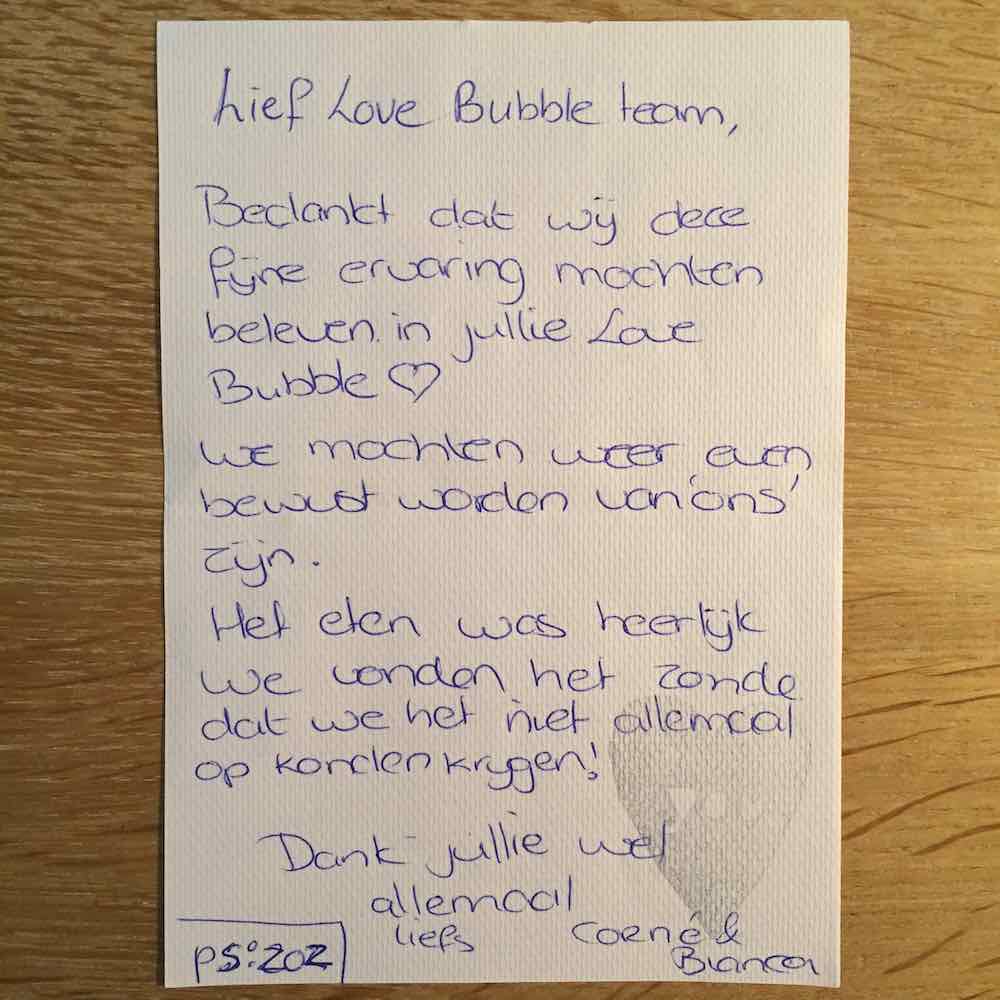 Lief Love Bubble team,
Bedankt dat wij deze
fijne ervaring mochten
beleven in jullie Love
Bubble ♡
We mochten weer even
bewust worden van 'ons'
zijn.
Het eten was heerlijk
we vonden het zonde
dat we het niet allemaal
op konden krijgen!
Dank jullie wel
allemaal
liefs Corné &
Bianca
PS: 202